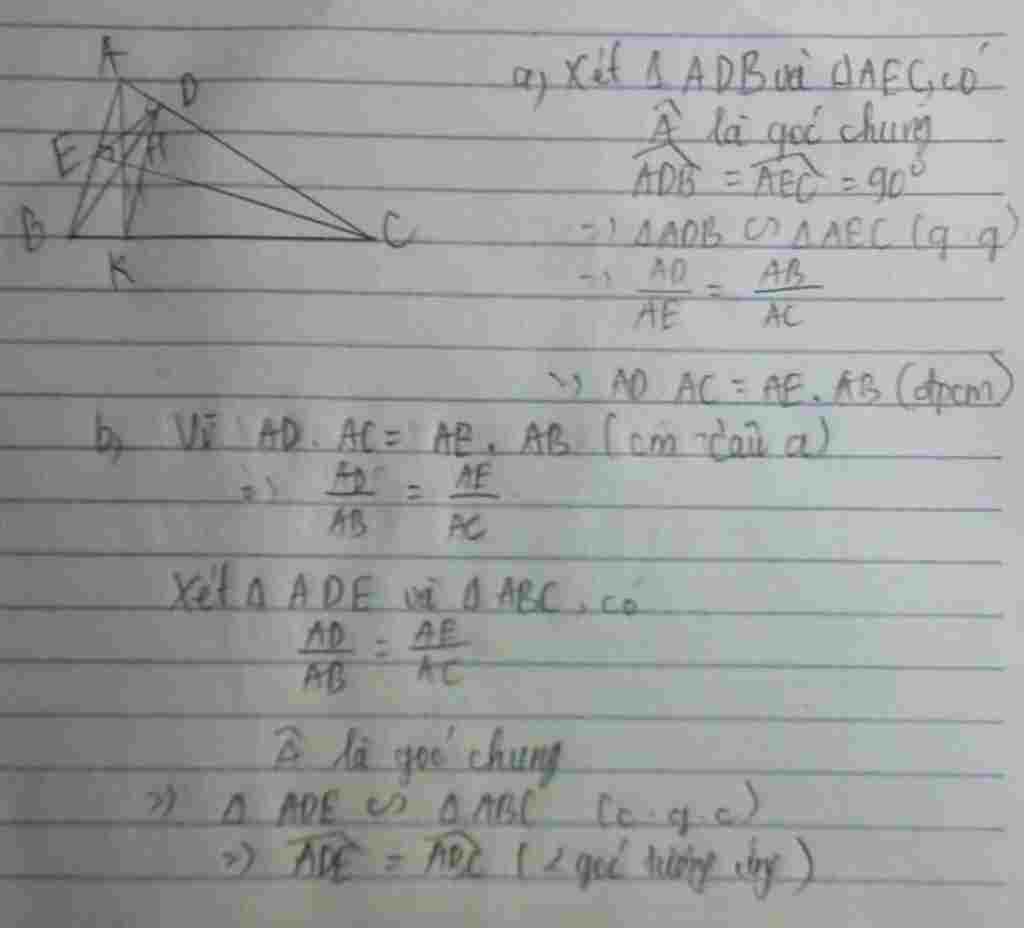 A
D
E
H
B
C
K
a, Xét Δ ADB và ΔAEC, có
Â là góc chung
ADB = AEC = 90°
=> ΔADB ∽ ΔAEC (g.g)
=> AD/AE = AB/AC
=> AD AC = AE. AB (đpcm)
b, Vì AD. AC = AE. AB (cm câu a)
=> AD/AB = AE/AC
Xét Δ ADE và Δ ABC, có
AD/AB = AE/AC
Â là góc chung
=> Δ ADE ∽ Δ ABC (c.g.c)
=> ADE = (2 góc tương ứng)